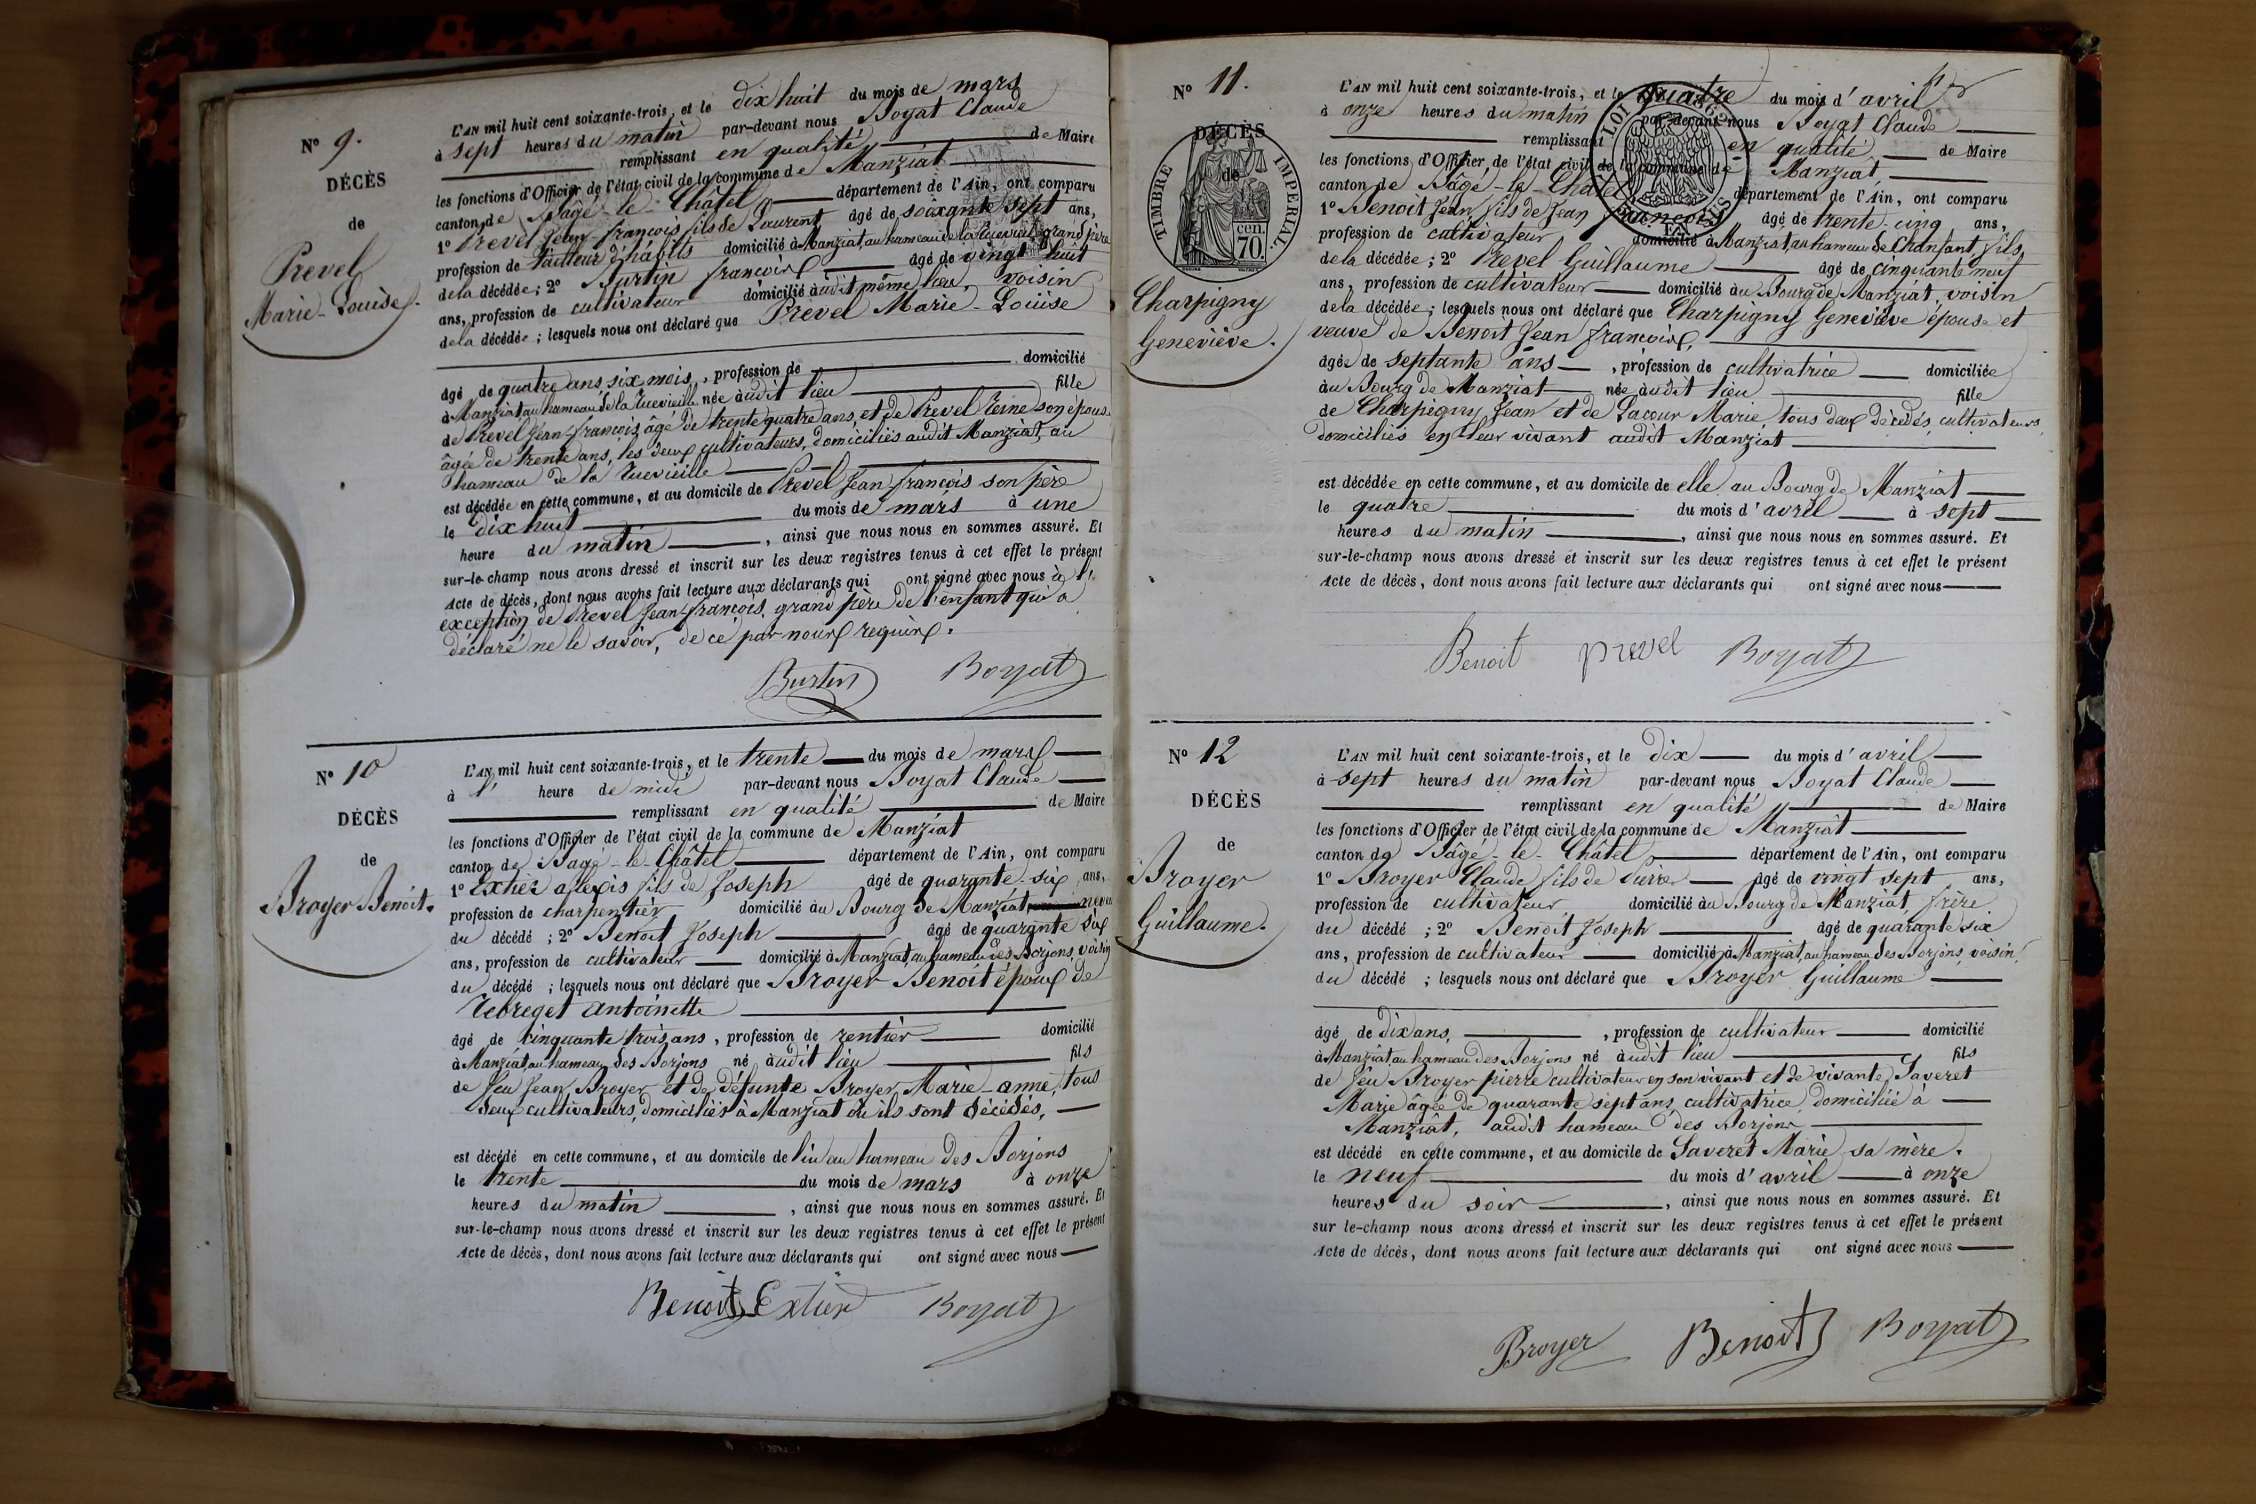 N° 9.
DÉCÈS
de
Prevel
Marie-Louise.
L'AN mil huit cent soixante-trois, et le dix huit du mois de mars
à sept heures du matin par-devant nous Boyat Claude
remplissant en qualité de Maire
les fonctions d'Officier de l'état civil de la commune de Manziat
canton de Bâgé-le-Châtel département de l'Ain, ont comparu
1° Prevel Jean françois fils de Laurent âgé de soixante sept ans,
profession de tailleur d'habits domicilié à Manziat, au hameau de la Ruevieille grand père
de la décédée; 2° Burtin françois âgé de vingt huit
ans, profession de cultivateur domicilié audit même lieu, voisin
de la décédée; lesquels nous ont déclaré que Prevel Marie-Louise
âgé de quatre ans six mois, profession de domicilié
à Manziat au hameau de la Ruevieille née audit lieu fille
de Prevel Jean-françois âgé de trente quatre ans, et de Prevel Reine son épouse
âgée de trente ans, les deux cultivateurs, domiciliés audit Manziat, au
hameau de la Ruevieille
est décédée en cette commune, et au domicile de Prevel Jean-françois son père
le dix huit du mois de mars à une
heure du matin, ainsi que nous nous en sommes assuré. Et
sur-le-champ nous avons dressé et inscrit sur les deux registres tenus à cet effet le présent
Acte de décès, dont nous avons fait lecture aux déclarants qui ont signé avec nous à l'
exception de Prevel Jean-françois, grand père de l'enfant qui a
déclaré ne le savoir, de ce par nous requis.
Burtin Boyat
N° 10
DÉCÈS
de
Broyer Benoit.
L'AN mil huit cent soixante-trois, et le trente du mois de mars
à l' heure de midi par-devant nous Boyat Claude
remplissant en qualité de Maire
les fonctions d'Officier de l'état civil de la commune de Manziat
canton de Bagé-le-Châtel département de l'Ain, ont comparu
1° Extier alexis fils de Joseph âgé de quarante-six ans,
profession de charpentier domicilié au Bourg de Manziat, neveu
du décédé; 2° Benoit Joseph âgé de quarante six
ans, profession de cultivateur domicilié à Manziat, au hameau des Borjons, voisin
du décédé; lesquels nous ont déclaré que Broyer Benoit époux de
Rebreget antoinette
âgé de cinquante trois ans, profession de rentier domicilié
à Manziat, au hameau des Borjons né audit lieu fils
de feu Jean Broyer et de défunte Broyer Marie-anne, tous
deux cultivateurs, domiciliés à Manziat où ils sont décédés,
est décédé en cette commune, et au domicile de lui au hameau des Borjons
le trente du mois de mars à onze
heures du matin, ainsi que nous nous en sommes assuré. Et
sur-le-champ nous avons dressé et inscrit sur les deux registres tenus à cet effet le présent
Acte de décès, dont nous avons fait lecture aux déclarants qui ont signé avec nous
Benoit Extier Boyat
N° 11.
DÉCÈS
de
TIMBRE IMPÉRIAL.
70. cen.
Charpigny
Geneviève.
L'AN mil huit cent soixante-trois, et le quatre du mois d'avril
à onze heures du matin par-devant nous Boyat Claude
remplissant en qualité de Maire
les fonctions d'Officier de l'état civil de la commune de Manziat
canton de Bâgé-le-Châtel département de l'Ain, ont comparu
1° Benoit Jean fils de Jean François âgé de trente-cinq ans,
profession de cultivateur domicilié à Manziat, au hameau de Chanfant, fils
de la décédée; 2° Prevel Guillaume âgé de cinquante neuf
ans, profession de cultivateur domicilié au Bourg de Manziat, voisin
de la décédée; lesquels nous ont déclaré que Charpigny Geneviève épouse et
veuve de Benoit Jean françois,
âgée de septante ans, profession de cultivatrice domiciliée
au Bourg de Manziat née audit lieu fille
de Charpigny Jean et de Lacour Marie, tous deux décédés, cultivateurs,
domiciliés en leur vivant audit Manziat
est décédée en cette commune, et au domicile de elle au Bourg de Manziat
le quatre du mois d'avril à sept
heures du matin, ainsi que nous nous en sommes assuré. Et
sur-le-champ nous avons dressé et inscrit sur les deux registres tenus à cet effet le présent
Acte de décès, dont nous avons fait lecture aux déclarants qui ont signé avec nous
Benoit prevel Boyat
N° 12
DÉCÈS
de
Broyer
Guillaume.
L'AN mil huit cent soixante-trois, et le dix du mois d'avril
à sept heures du matin par-devant nous Boyat Claude
remplissant en qualité de Maire
les fonctions d'Officier de l'état civil de la commune de Manziat
canton de Bâgé-le-Châtel département de l'Ain, ont comparu
1° Broyer Claude fils de Pierre âgé de vingt sept ans,
profession de cultivateur domicilié au Bourg de Manziat, frère
du décédé; 2° Benoit Joseph âgé de quarante six
ans, profession de cultivateur domicilié à Manziat, au hameau des Borjons, voisin
du décédé; lesquels nous ont déclaré que Broyer Guillaume
âgé de dix ans, profession de cultivateur domicilié
à Manziat, au hameau des Borjons né audit lieu fils
de feu Broyer pierre cultivateur en son vivant et de vivante Saveret
Marie âgée de quarante sept ans, cultivatrice, domiciliée à
Manziat, audit hameau des Borjons
est décédé en cette commune, et au domicile de Saveret Marie, sa mère.
le neuf du mois d'avril à onze
heures du soir, ainsi que nous nous en sommes assuré. Et
sur le-champ nous avons dressé et inscrit sur les deux registres tenus à cet effet le présent
Acte de décès, dont nous avons fait lecture aux déclarants qui ont signé avec nous
Broyer Benoit Boyat